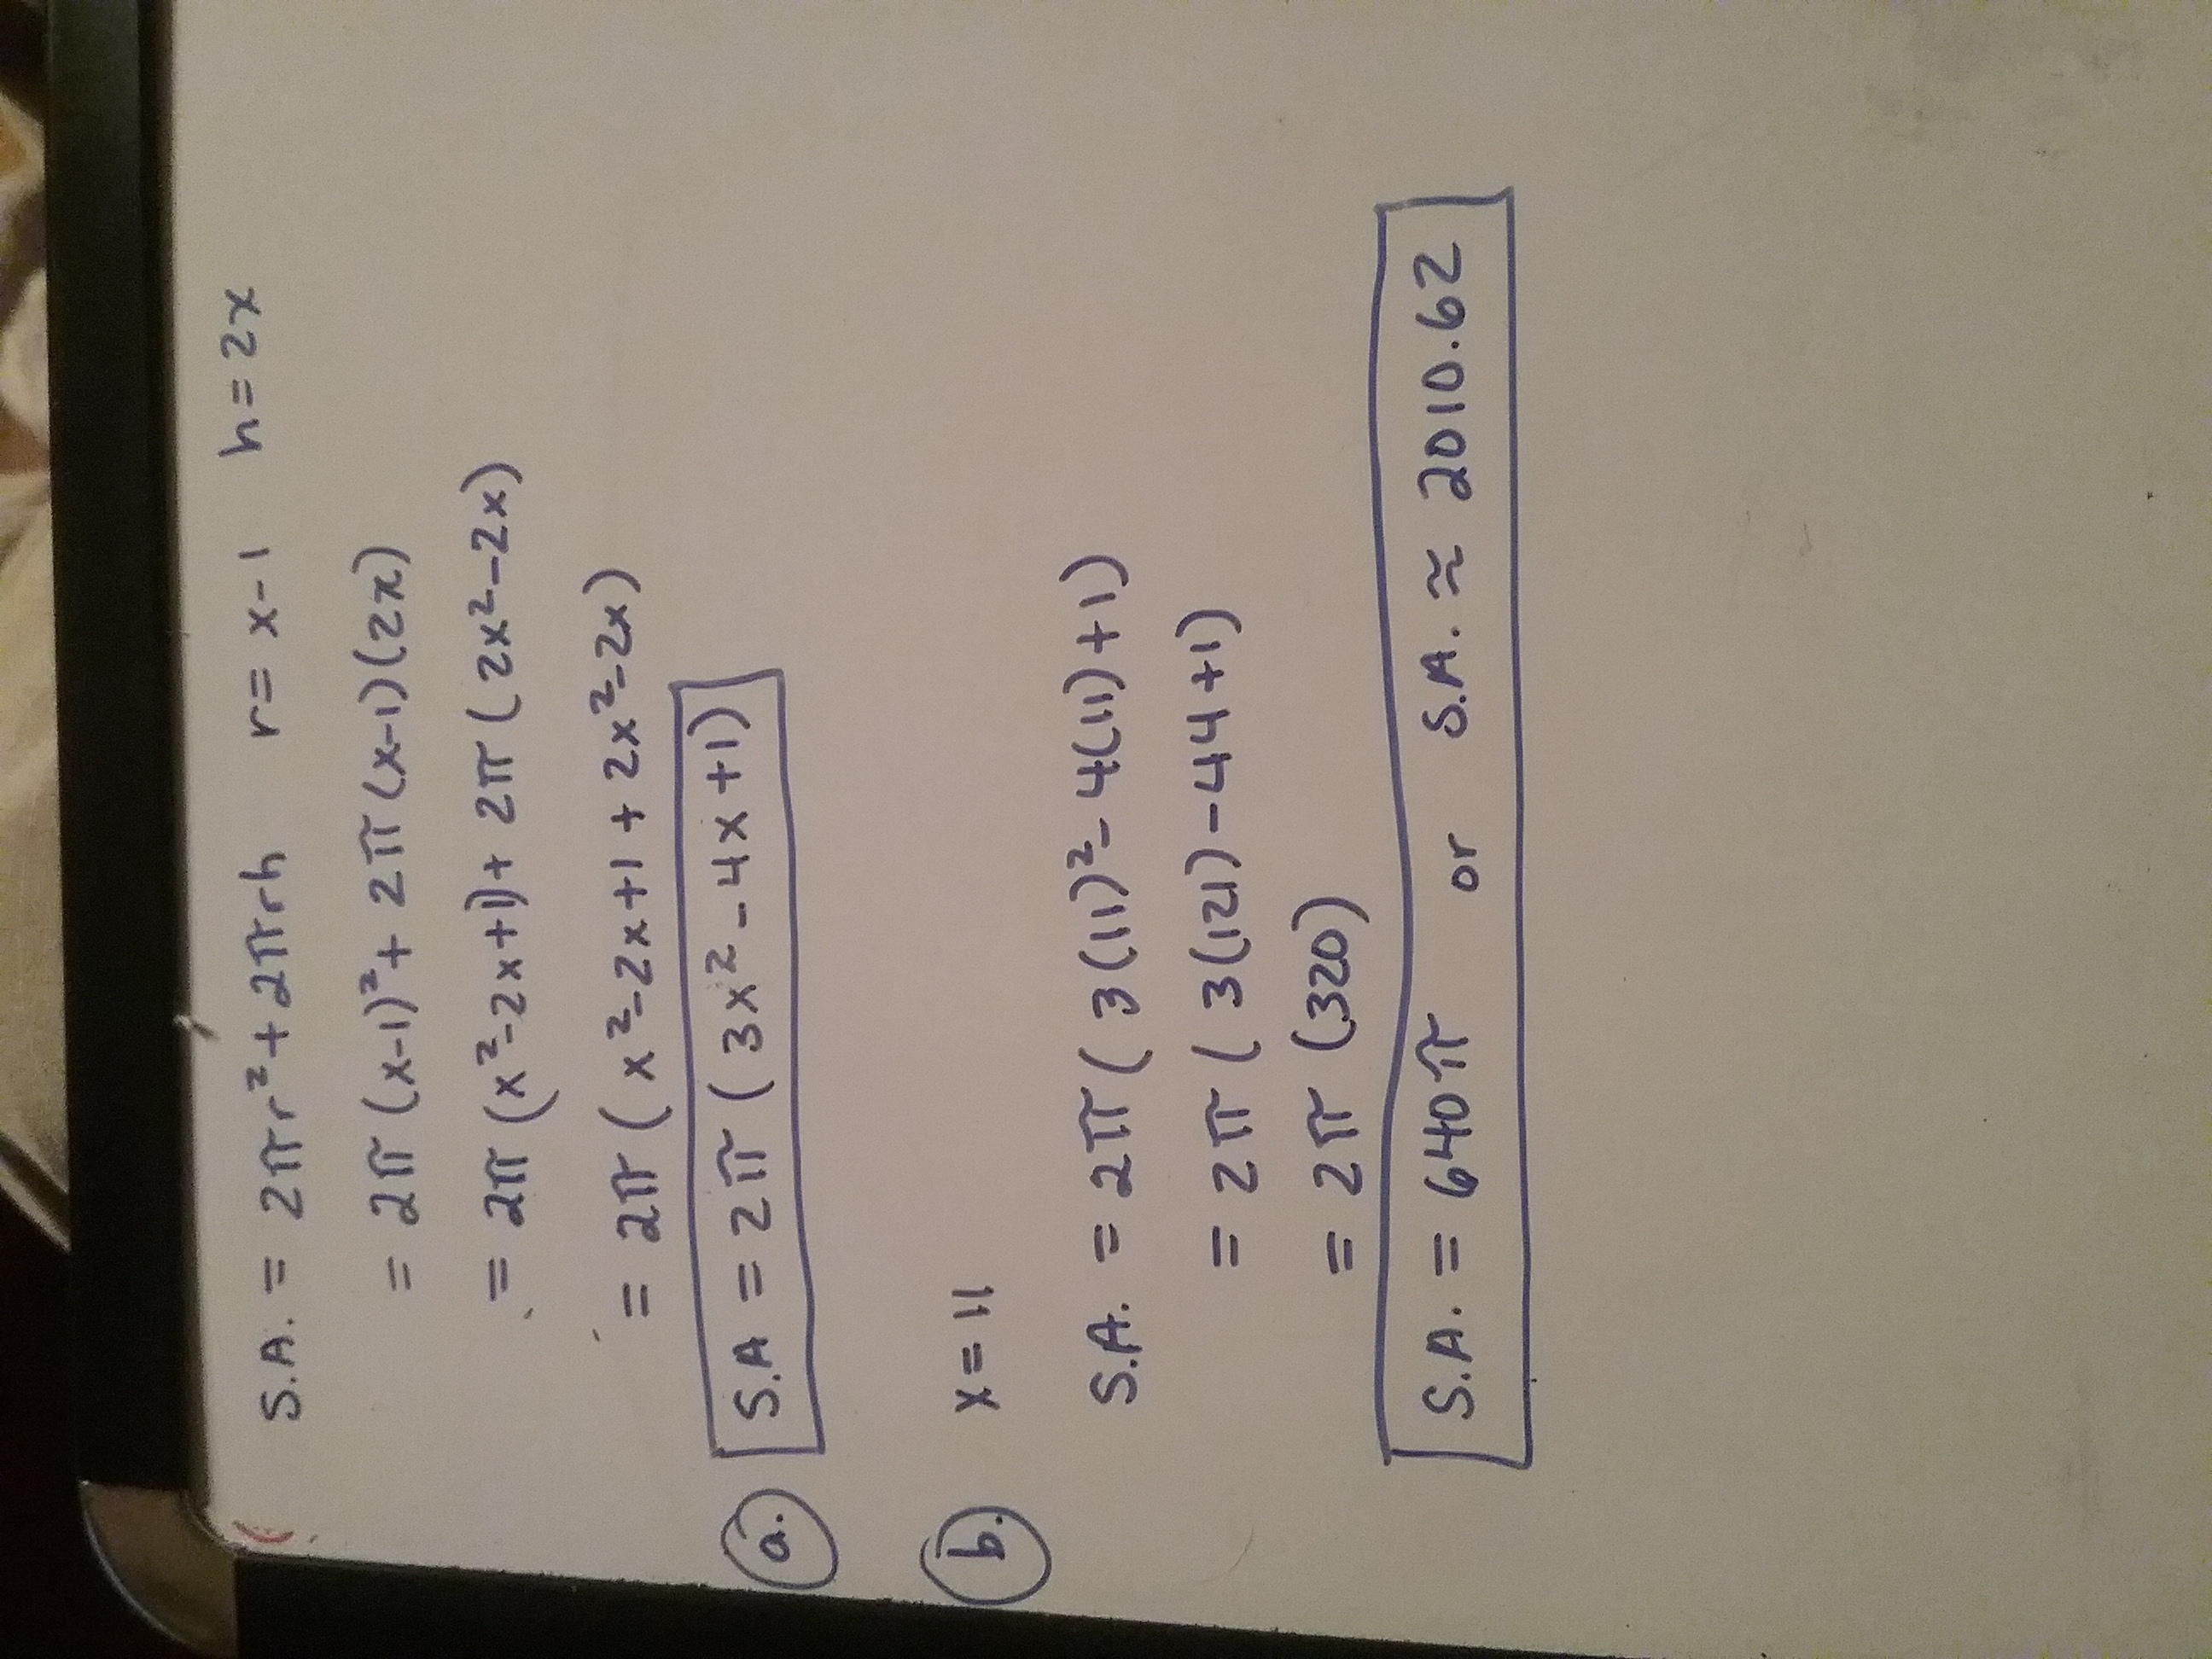 S.A. = 2πr² + 2πrh r = x-1 h = 2x
= 2π (x-1)² + 2π (x-1)(2x)
= 2π (x²-2x+1) + 2π (2x²-2x)
= 2π (x²-2x+1 + 2x²-2x)
a. S.A = 2π (3x² - 4x + 1)
b. x = 11
S.A. = 2π (3(11)² - 4(11) + 1)
= 2π (3(121) - 44 + 1)
= 2π (320)
S.A. = 640π or S.A. ≈ 2010.62